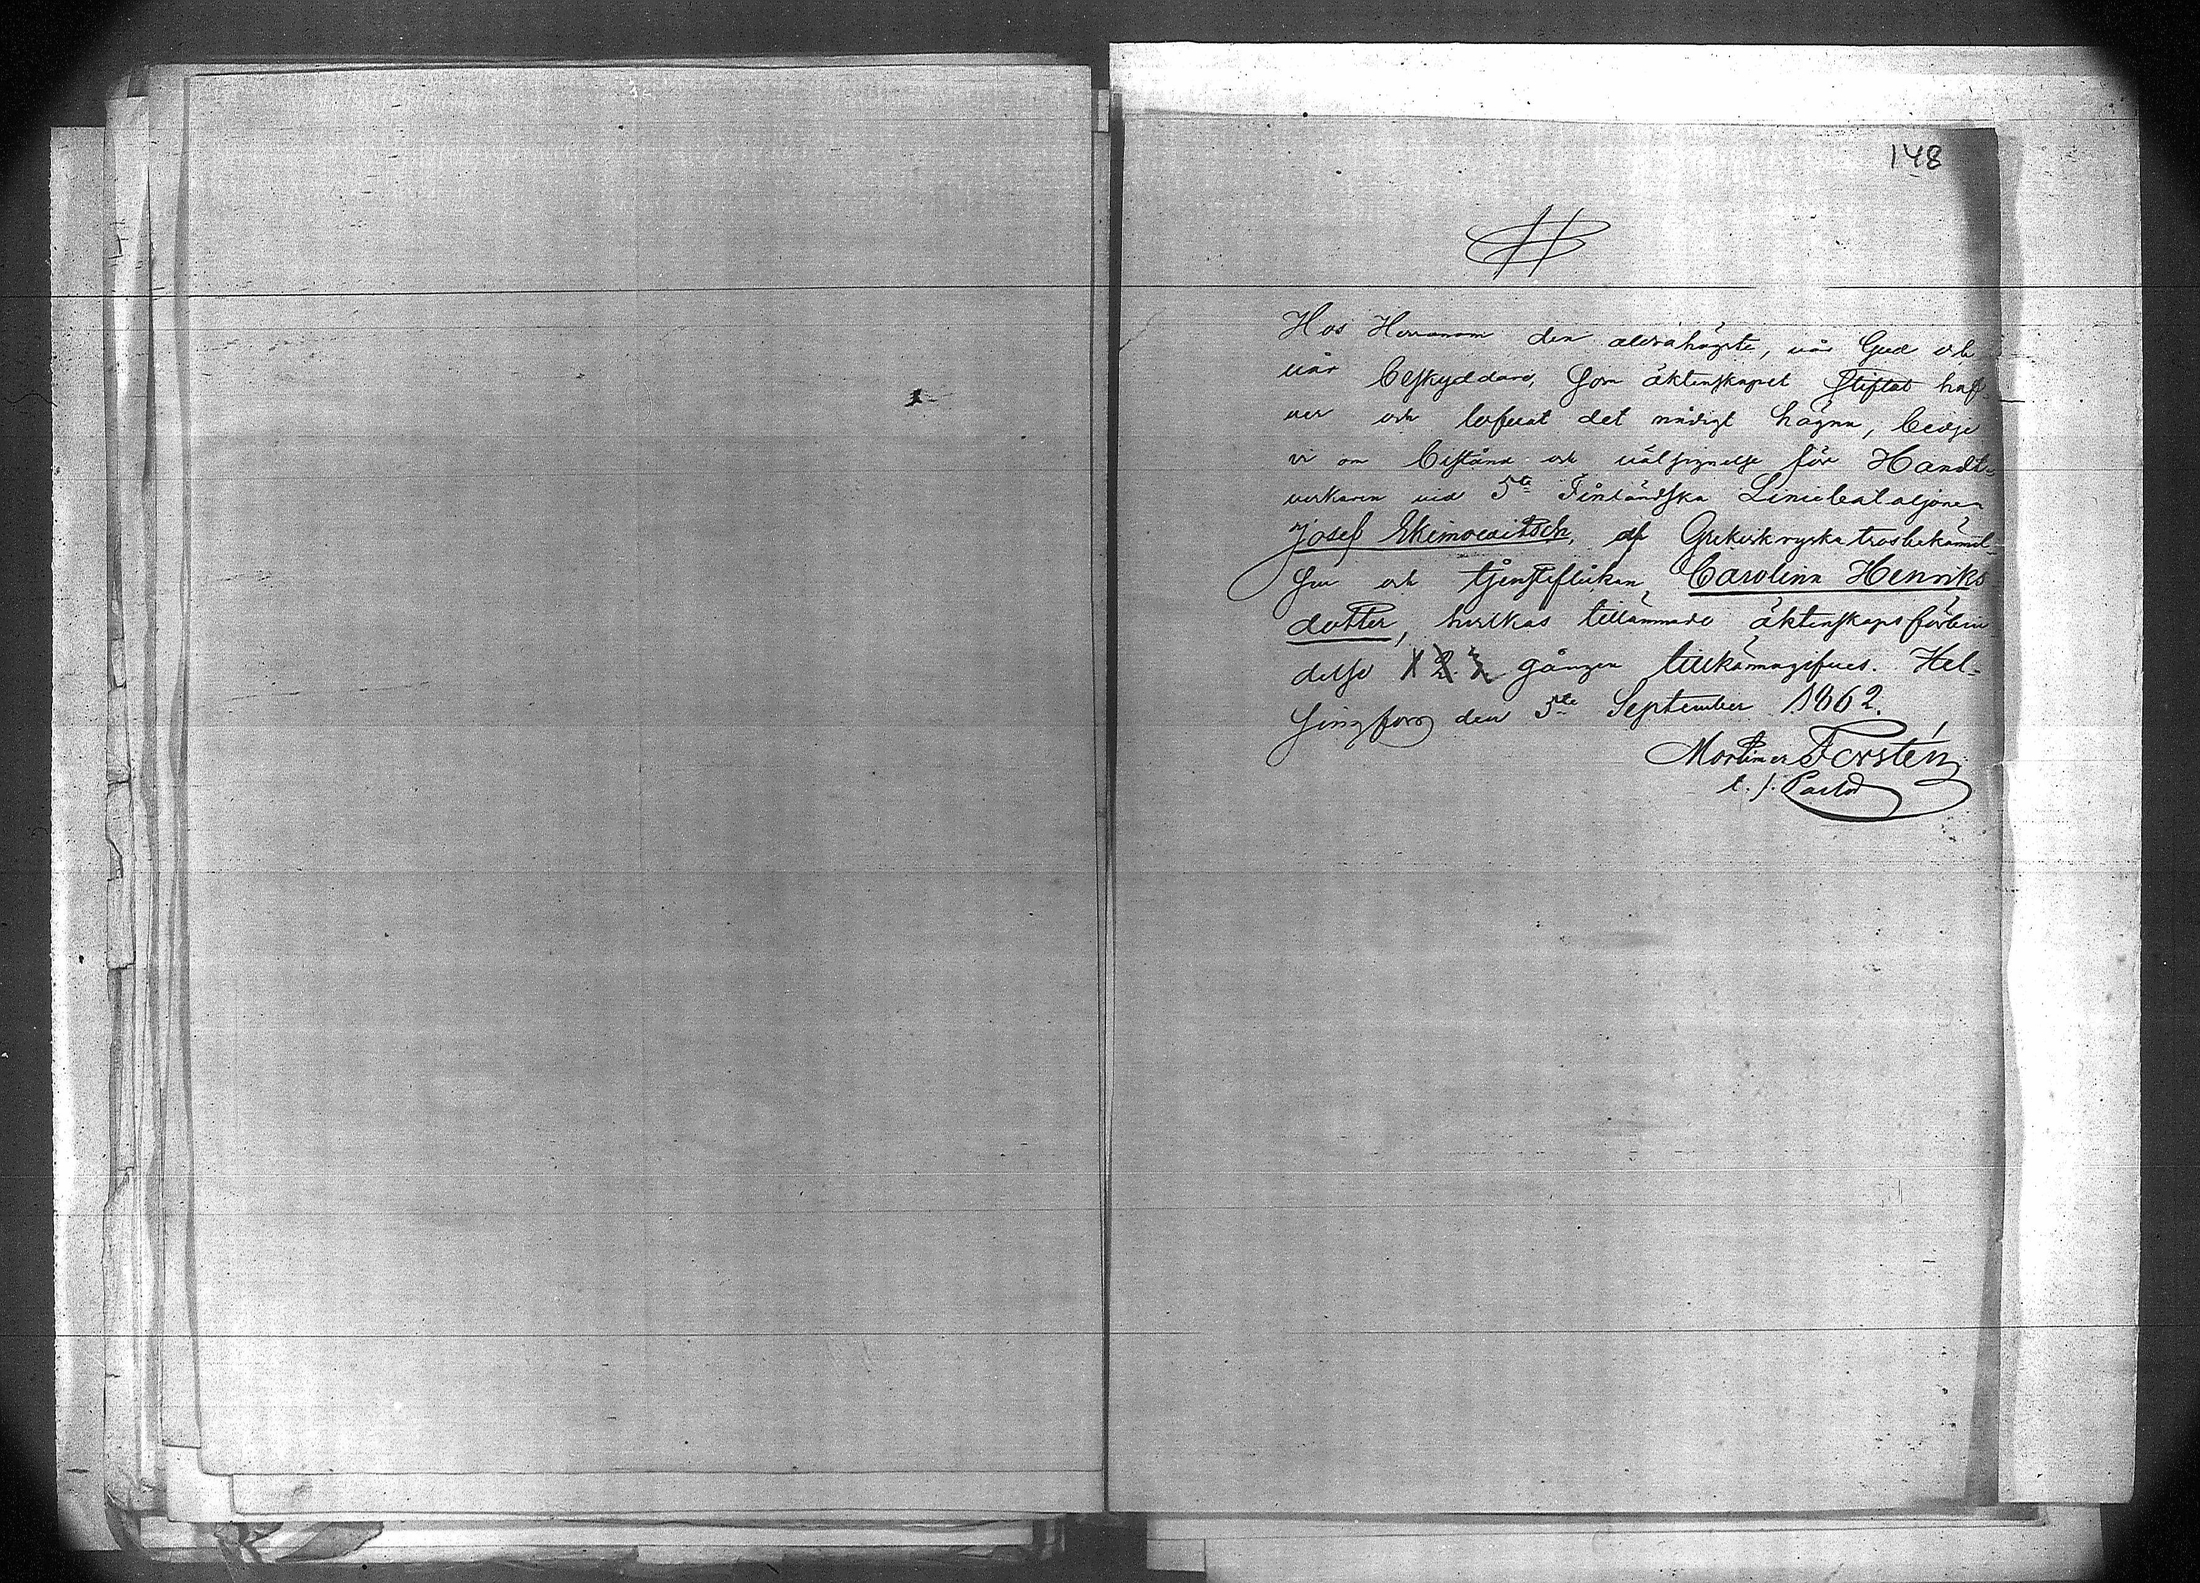 148
Hos Herranom den aldrahögste, vår Gud och
vår beskyddare, som äktenskapet stiftat haf-
ver och lofvat det nådigt hägna, bedje
vi om bistånd och välsignelse för Handt-
verkaren vid 5te Finländska Liniebataljonen
Josef Ekimowitsch, af Grekisk ryska trosbekännel-
sen och tjensteflickan Carolina Henriks
dotter, hvilkas tillämnade äktenskaps förbin
delse 1 2. 3. gången tillkännagifves. Hel-
singfors den 5te September 1862.
Mortimer Forstén
t. f. Pastor